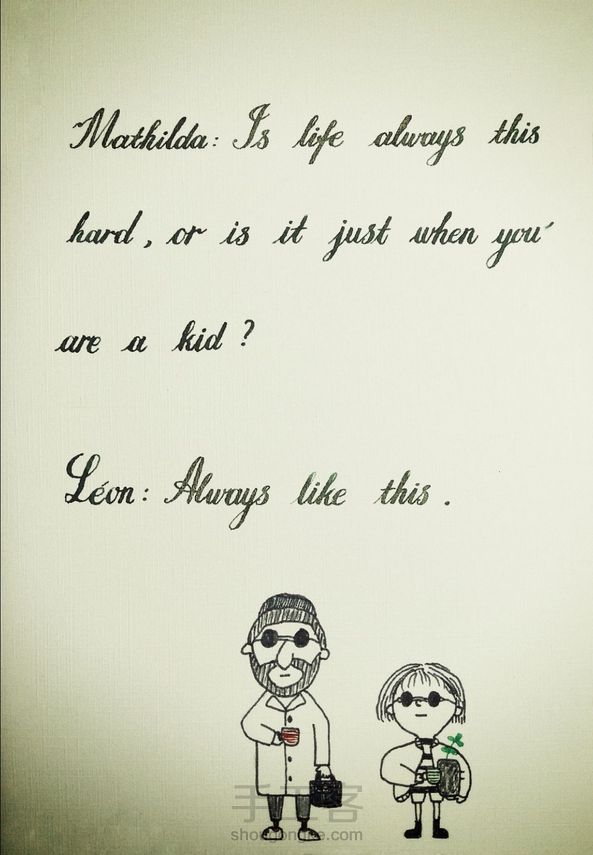 Mathilda: Is life always this
hard, or is it just when you
are a kid?
Léon: Always like this.
手工客
shougongke.com